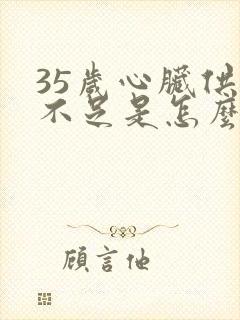 35歲心臟供
不足是怎麼
顧言他